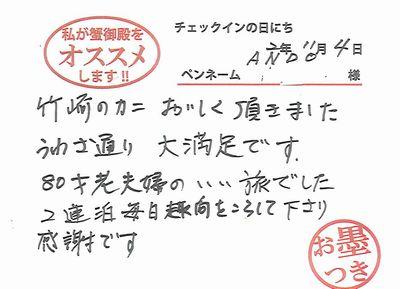 私が蟹御殿を
オススメ
します!!
チェックインの日にち
2年11月4日
ペンネーム ANDO 様
竹崎のカニ おいしく頂きました
うわさ通り 大満足です.
80才老夫婦のいい旅でした
2連泊毎日趣向をこらして下さり
感謝です
お墨
つき